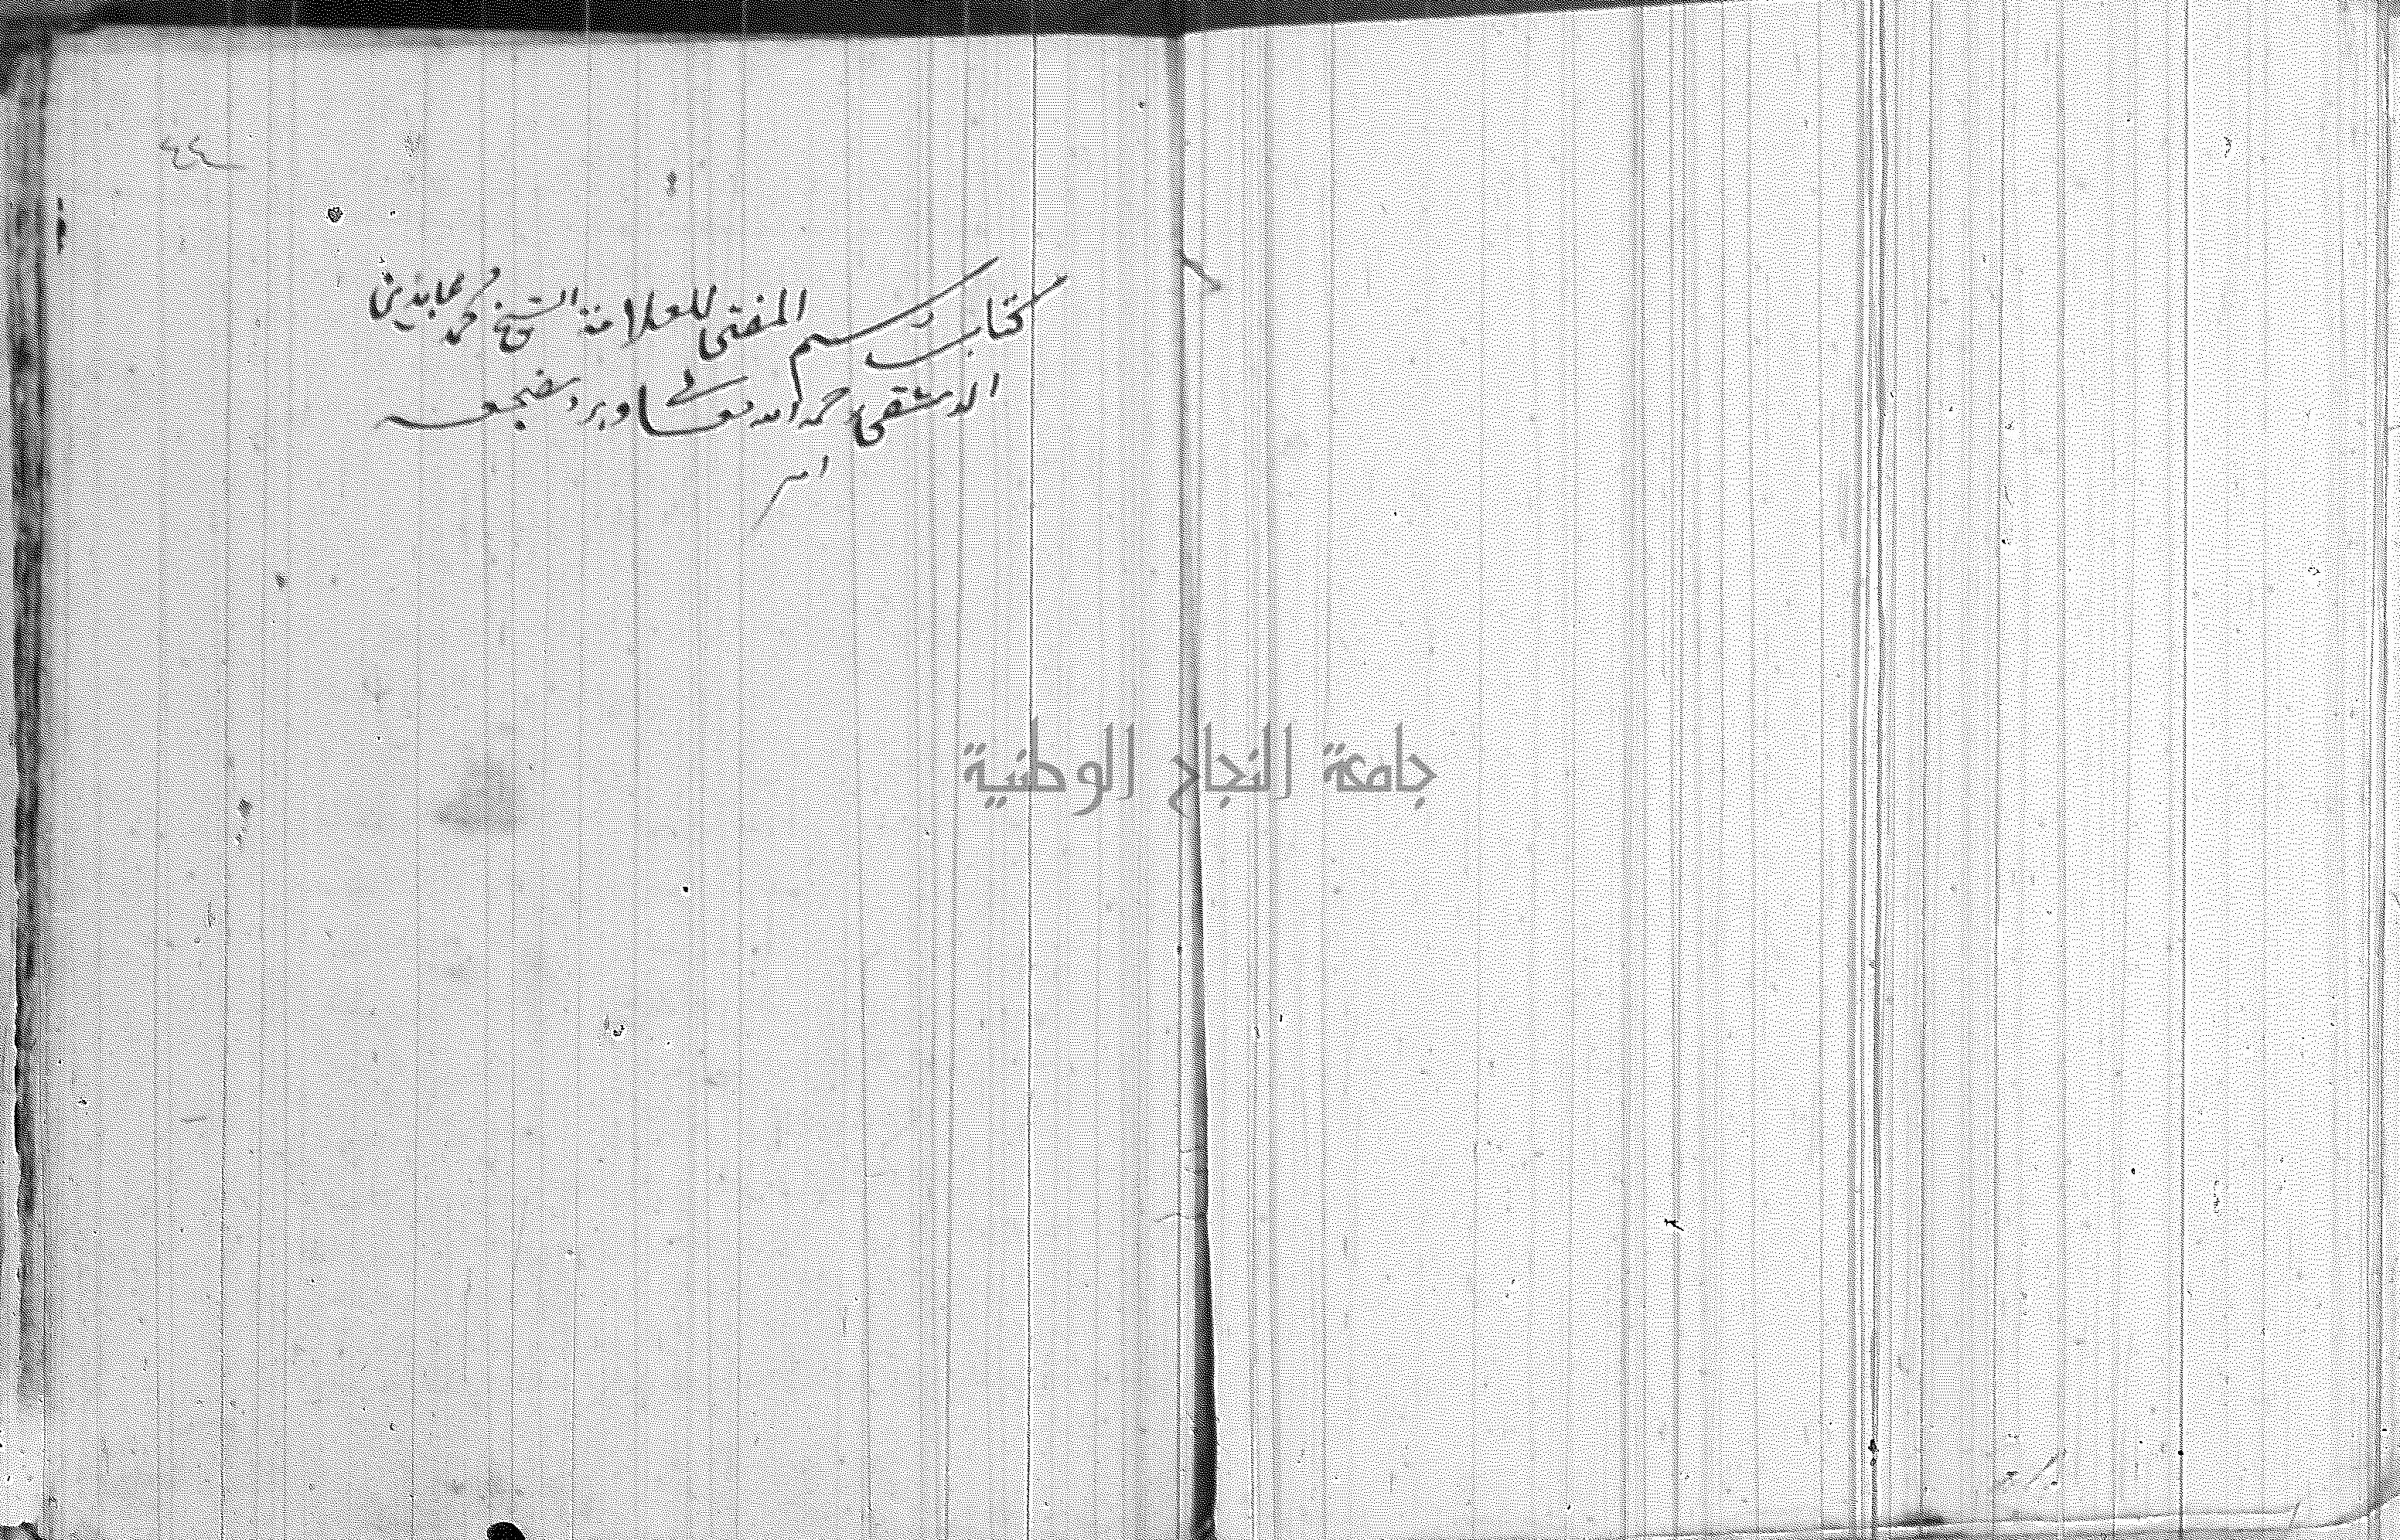 ٤٤
كتاب رسم المفتي للعلامة الشيخ محمد عابدين
الدمشقي رحمه الله تعالى وبرد مضجعه
امين
جامعة النجاح الوطنية